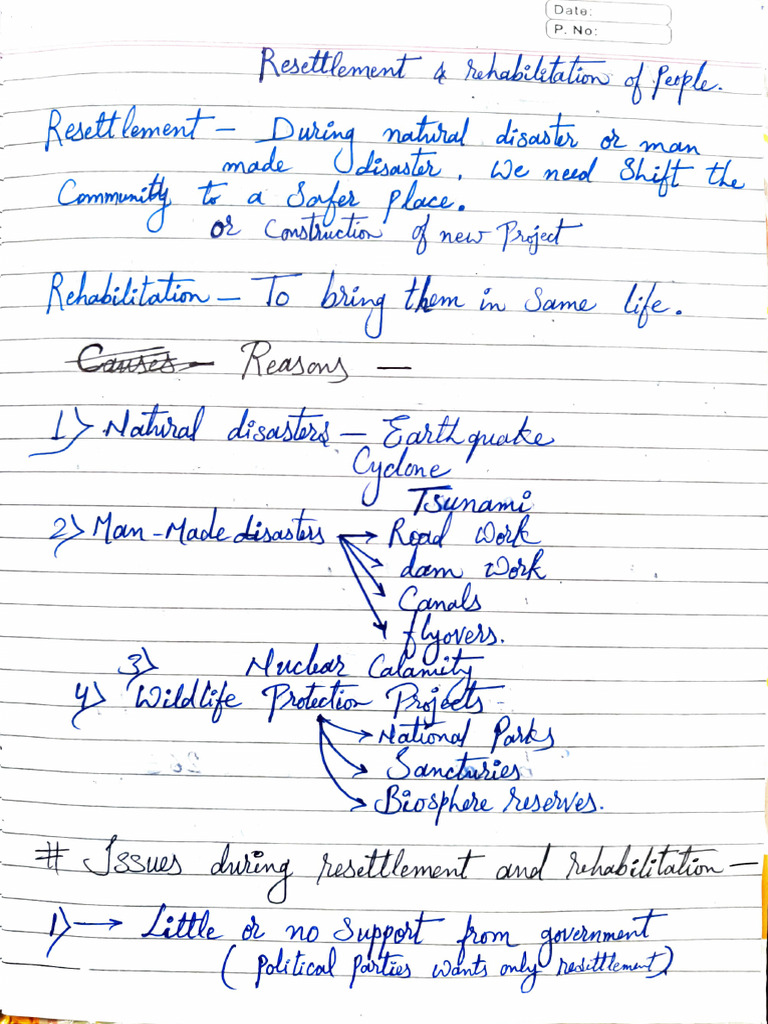 Date:
P. No:
Resettlement & rehabilitation of People.
Resettlement – During natural disaster or man
made disaster, We need Shift the
Community to a Safer place.
or Construction of new Project
Rehabilitation – To bring them in Same life.
Causes – Reasons –
1) Natural disasters – Earthquake
Cyclone
Tsunami
2) Man-Made disasters → Road Work
dam work
Canals
flyovers.
3) Nuclear Calamity
4) Wildlife Protection Projects
National Parks
Sancturies
Biosphere reserves.
# Issues during resettlement and rehabilitation –
1) → Little or no Support from government
(political parties wants only resettlement)